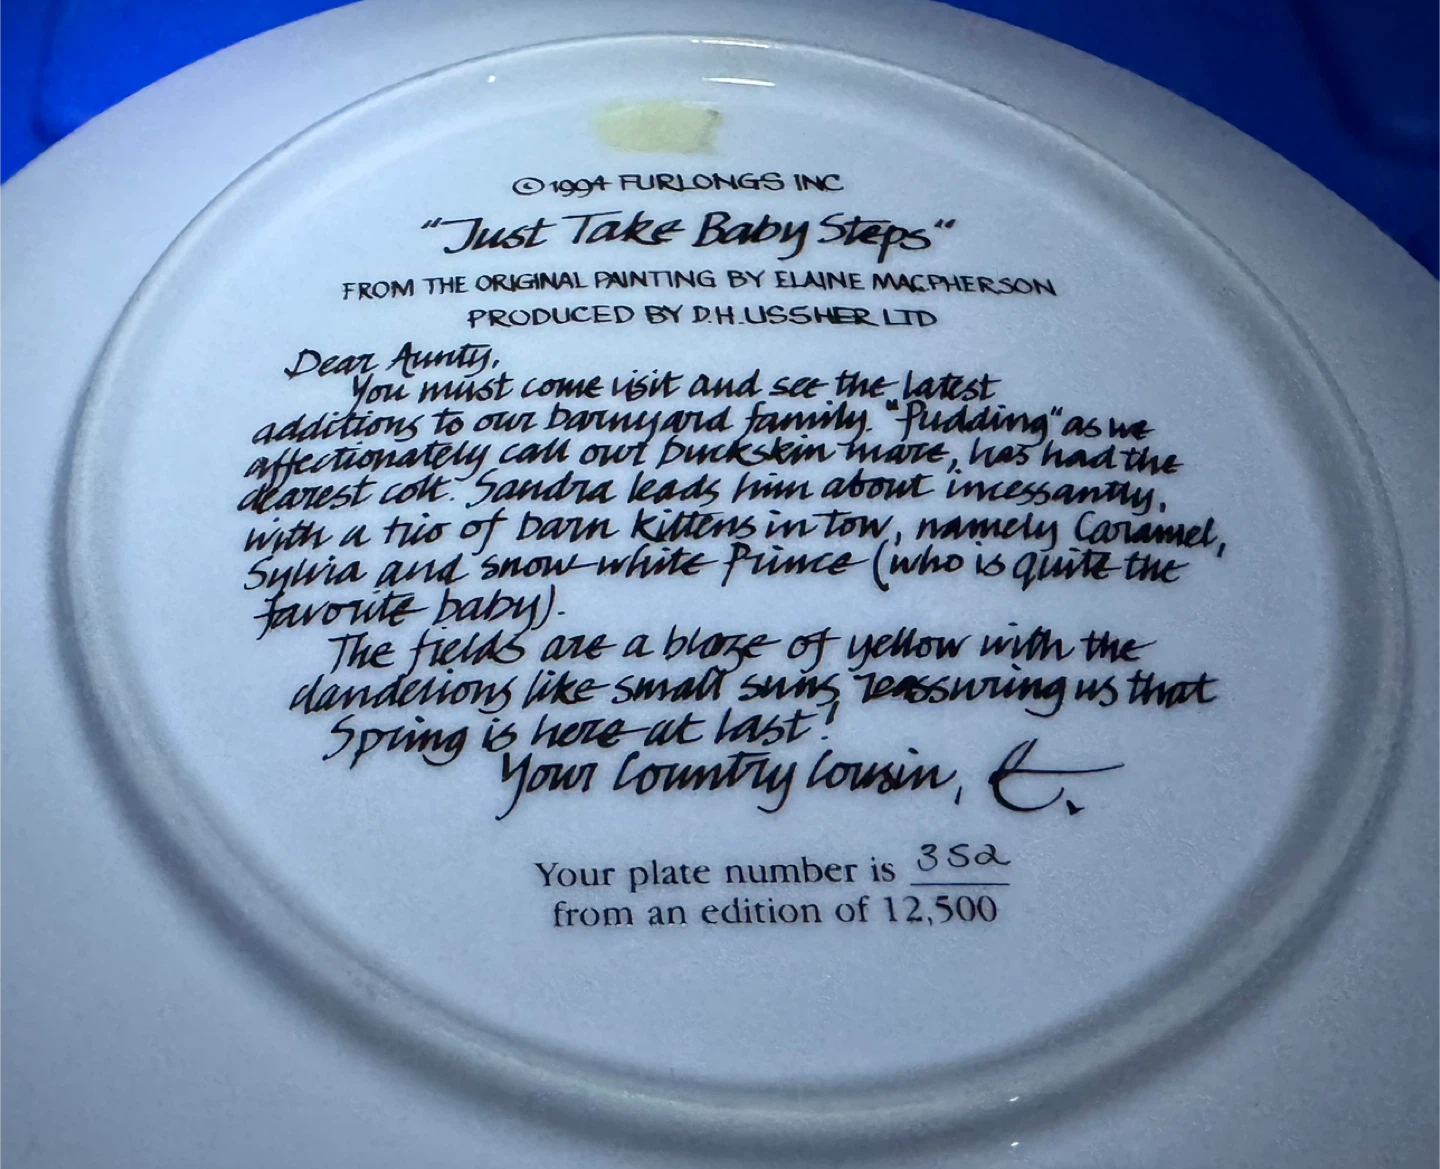 © 1994 FURLONGS INC
"Just Take Baby Steps"
FROM THE ORIGINAL PAINTING BY ELAINE MACPHERSON
PRODUCED BY D.H. USSHER LTD
Dear Aunty,
You must come visit and see the latest
additions to our barnyard family. "Pudding" as we
affectionately call our buckskin mare, has had the
dearest colt. Sandra leads him about incessantly,
with a trio of barn kittens in tow, namely Caramel,
Sylvia and snow-white Prince (who is quite the
favorite baby).
The fields are a blaze of yellow with the
dandelions like small suns, reassuring us that
Spring is here at last!
Your Country Cousin, E.
Your plate number is 352
from an edition of 12,500